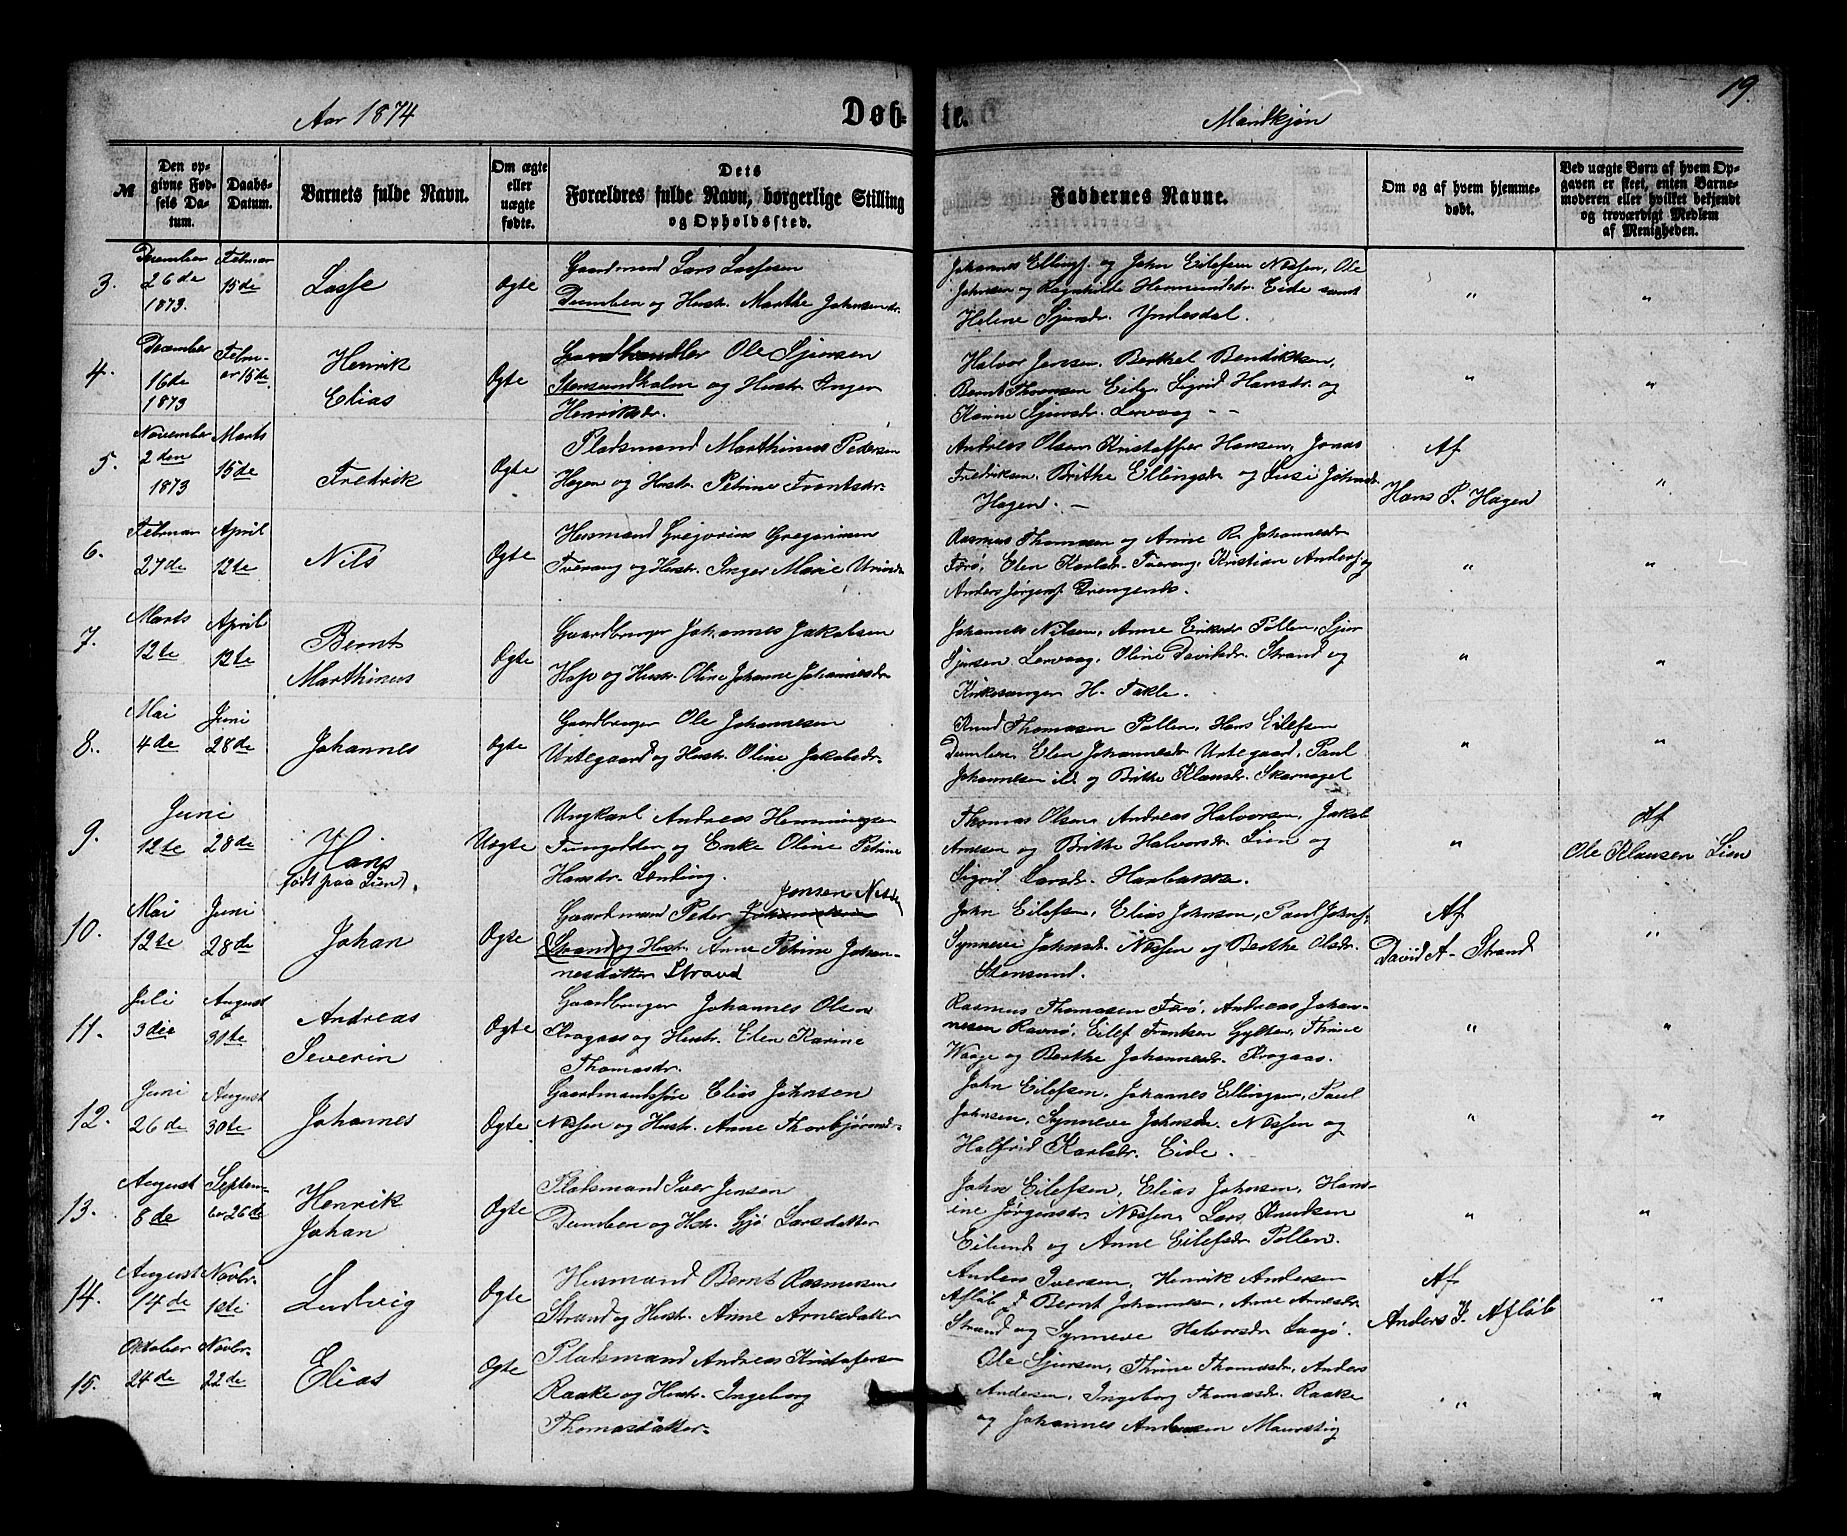 Aar 1874
Døb-
te.
Mandkjøn
19.
№
Den op-
givne Fød-
sels Da-
tum.
Daabs-
Datum.
Barnets fulde Navn.
Om ægte
eller
uægte
fødte.
Dets
Forældres fulde Navn, borgerlige Stilling
og Opholdssted.
Faddernes Navne.
Om og af hvem hjemme-
døbt.
Ved uægte Børn af hvem Op-
gaven er skeet, enten Barne-
moderen eller hvilket bekjendt
og troværdigt Medlem
af Menigheden.
3.
December
26de
1873.
Februar
15de
Lasse
Ægte
Gaardmand Lars Lassesen
Dumben og Hustr. Marthe Johnsendr.
Johannes Ellings. og John Eilefsen Nessen, Ole
Johnsen og Ragnhilde Hermundsdr. Eide samt
Helene Sjursdr. Yndesdal.
"
"
4.
December
16de
1873
Febru-
ar 15de
Henrik
Elias
Ægte
Landhandler Ole Sjursen
Stensundholm og Hustr. Inger
Henriksdr.
Halvor Jensen, Berthel Bendiktsen,
Bernt Thomsen Eide, Sigrid Hansdr. og
Karine Sjursdr. Lervaag - -
"
"
5.
November
2den
1873
Marts
15de
Fredrik
Ægte
Pladsmand Marthinus Pedersen
Hagen og Hustr. Petrine Frantsdr.
Andreas Olsen, Kristoffer Hansen, Jonas
Fredriksen, Brithe Ellingsdr. og Susi Johnsdr.
Hagen. -
Af
Hans P. Hagen
"
6.
Februar
27de
April
12te
Nils
Ægte
Husmand Gregorius Gregoriusen
Tverang og Hustr. Inger Marie
Rasmus Thomasen og Anne R. Johannesdr
Førø, Elen Karlsdr. Tverang, Kristian Anders. og
Anders Jørgens. Drengenes.
"
"
7.
Marts
12te
April
12te
Bernt
Marthinus
Ægte
Gaardbruger Johannes Jakobsen
Hope og Hustr. Oline Johanne Johannesdr.
Johannes Nilsen, Anne Eriksdr Pollen, Sjur
Sjursen Lervaag, Oline Davidsdr. Strand og
Kirkesanger H. Takle.
"
"
8.
Mai
4de
Juni
28de
Johannes
Ægte
Gaardbruger Ole Johannesen
Urtegaard og Hustr. Oline Jakobsdr.
Knud Thomasen Pollen, Hans Eilefsen
Dumben, Elen Johannesdr Urtegaard, Paul
Johannesen ib. og Brithe Klausdr. Skarnagel
"
"
9.
Juni
12te
28de
Hans
(født paa Lien).
Uægte
Ungkarl Andreas Hemmingsen
og Enke Oline Petrine
Hansdr.
Thomas Olsen, Andreas Halvorsen, Jakob
Arnesen og Brithe Halvorsdr. Lien og
Sigrid Larsdr. Harbakke.
"
Af
Ole Klausen Lien
10.
Mai
12te
Juni
28de
Johan
Ægte
Jensen
Gaardmand Peder
(Strand) og Hustr. Anne Petrine Johan-
nesdatter Strand
John Eilefsen, Elias Johnsen, Paul Johns.
Synneve Johnsdr. Nessen og Berthe Olsdr.
Stensund.
Af
David A. Strand
"
11.
Juli
3die
August
30te
Andreas
Severin
Ægte
Gaardbruger Johannes Olsen
Krogaas og Hustr. Elen Karine
Thomasdr.
Rasmus Thomasen Førø, Andreas Johan-
nesen Ravnø, Eilef Frantsen Gylten, Thrine
Waage og Berthe Johannesdr. Krogaas.
"
"
12.
Juni
26de
August
30te
Johannes
Ægte
Gaardmandsføre Elias Johnsen
Nessen og Hustr. Anne Thorbjørnsdr.
John Eilefsen, Johannes Ellingsen, Paul
Johnsen, Synneve Johnsdr. Nessen og
Halfrid Karlsdr. Eide.
"
"
13.
August
8de
Septem-
br 26de
Henrik
Johan
Ægte
Pladsmand Iver Jensen
Dumben og Hstr. Gjø Larsdatter
John Eilefsen, Elias Johnsen, Han-
ine Jørgensdr. Nessen, Lars Knudsen
Eilund og Anne Eilefsdr. Pollen.
"
"
14.
August
14de
Novbr.
1ste
Ludvig
Ægte
Husmand Bernt Rasmusen
Strand og Hustr. Anne Arnesdatter
Anders Iversen, Henrik Andersen
Afløb, Bernt Johannesen, Anne Arnesdr.
Strand og Synneve Halvorsdr. Laagø.
Af
Anders I. Afløb
"
15.
Oktober
24de
Novbr.
22de
Elias
Ægte
Pladsmand Andreas Kristofersen
Raake og Hustr. Ingeborg
Thomasdatter.
Ole Sjursen, Thrine Thomasdr., Anders
Andersen, Ingeborg Thomasdr. Raake
og Johannes Andersen Maurstig
"
"